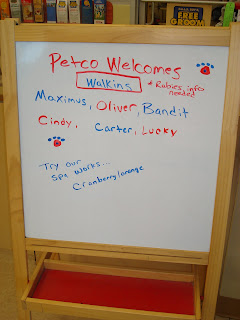 FREE
GROOM
Petco Welcomes
Walkins
* Rabies info
needed
Maximus, Oliver, Bandit
Cindy, Carter, Lucky
Try our
Spa Works...
Cranberry/orange